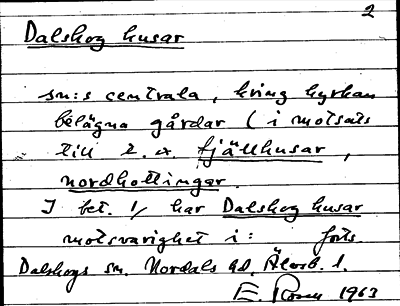 2
Dalskog husar
sn:s centrala, kring kyrkan
belägna gårdar (i motsats
till t. ex. fjällhusar,
nordhottingar.
I bet. 1, har Dalskog husar
motsvarighet i: forts.
Dalskogs sn. Nordals hd. Älvsb. l.
E Rosen 1963